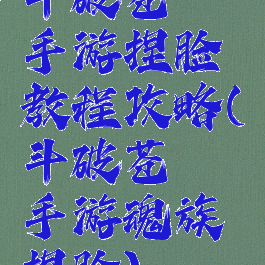 斗破苍
手游捏脸
教程攻略(
斗破苍
手游魂族
捏脸)